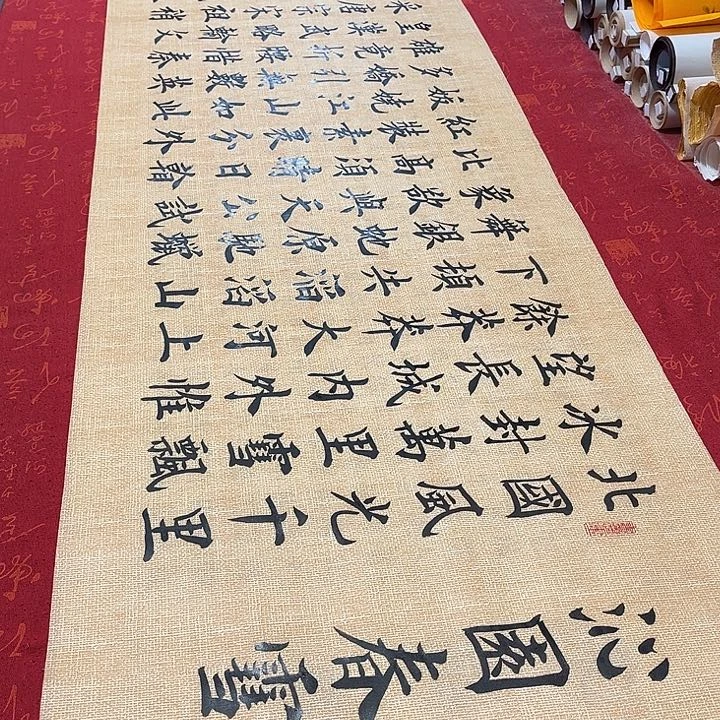 沁園春雪
北國風光千里
冰封萬里雪飄
望長城內外惟
餘莽莽大河上
下頓失滔滔山
舞銀蛇原馳蠟
象欲與天公試
比高須晴日看
紅裝素裹分外
妖嬈江山如此
多嬌引無數英
雄競折腰惜秦
皇漢武略輸文
采唐宗宋祖稍